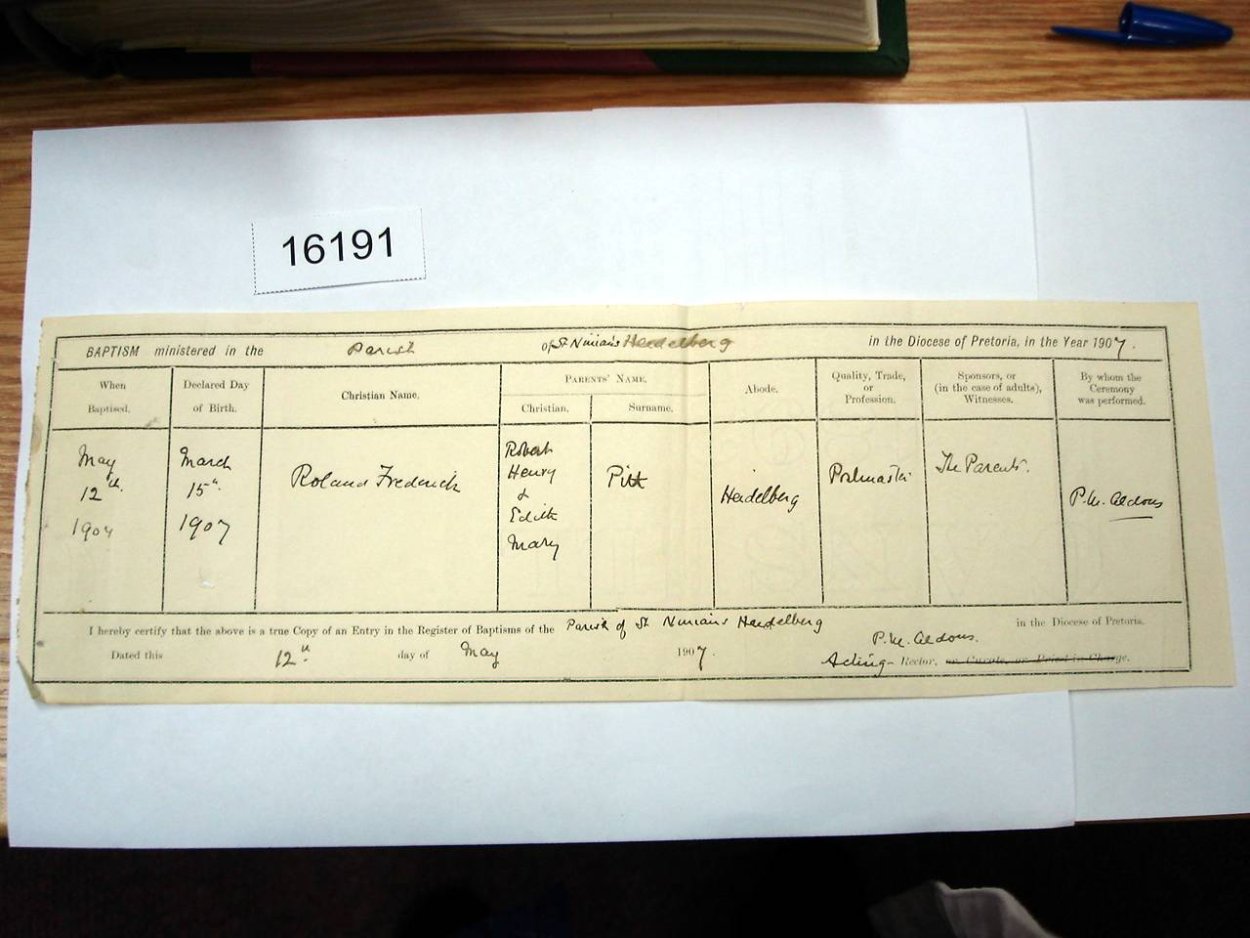 16191
BAPTISM ministered in the Parish of St Ninian's Heidelberg in the Diocese of Pretoria, in the Year 1907.
When Baptised.
Declared Day of Birth.
Christian Name.
PARENTS' NAME.
Christian.
Surname.
Abode.
Quality, Trade, or Profession.
Sponsors, or (in the case of adults), Witnesses.
By whom the Ceremony was performed.
May
12th
1907
March
15th
1907
Roland Frederick
Robert
Henry
&
Edith
Mary
Pitt
Heidelberg
Postmaster
The Parents.
P. M. Aldous
I hereby certify that the above is a true Copy of an Entry in the Register of Baptisms of the Parish of St Ninian's Heidelberg in the Diocese of Pretoria.
Dated this 12th day of May 1907.
P. M. Aldous.
Acting- Rector, or Curate, or Priest in Charge.